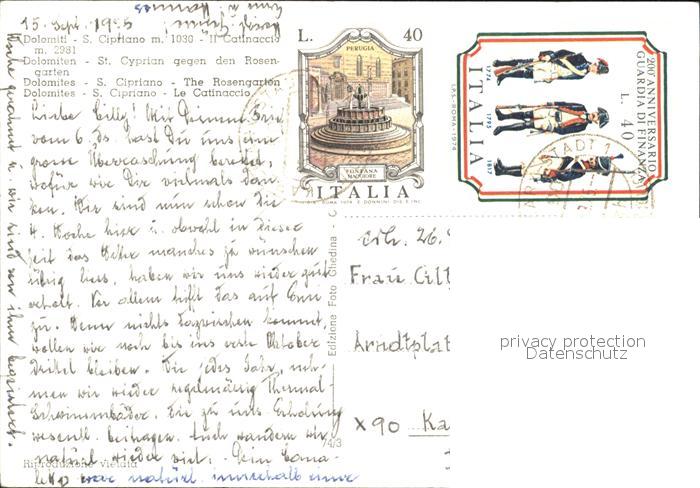 15. Sept. 1975
Dolomiti - S. Cipriano m. 1030 - Il Catinaccio
m. 2981
Dolomiten - St. Cyprian gegen den Rosen-
garten
Dolomites - S. Cipriano - The Rosengarten
Dolomites - S. Cipriano - Le Catinaccio
Liebe Cilly! Mit Deinem
vom 6. ds. hast Du uns eine
große Überraschung bereitet,
wofür wir Dir vielmals dan-
ken. Wir sind nun schon die
4. Woche hier u. obwohl in dieser
Zeit das Wetter manches zu wünschen
übrig ließ, haben wir uns wieder gut
erholt. Vor allem trifft das auf
zu. Wenn nichts dazwischen kommt,
wollen wir noch bis ins erste Oktober
Drittel bleiben. Wie jedes Jahr, neh-
men wir wieder regelmäßig Thermal-
Schwimmbäder, die zu uns. Erholung
wesentl. beitragen. Auch wandern wir
natürl. wieder viel. Dein
war natürl. innerhalb einer
Woche gerahmt u. wir sind von ihm begeistert.
L. 40
PERUGIA
FONTANA
MAGGIORE
ITALIA
200° ANNIVERSARIO
GUARDIA DI FINANZA
L. 40
ITALIA
I.P.S.-ROMA-1974
1774
1795
1817
Edizione Foto Ghedina - C
74/3
Riproduzione vietata
Frau Cill
Arndtplat
X90 Ka
privacy protection
Datenschutz